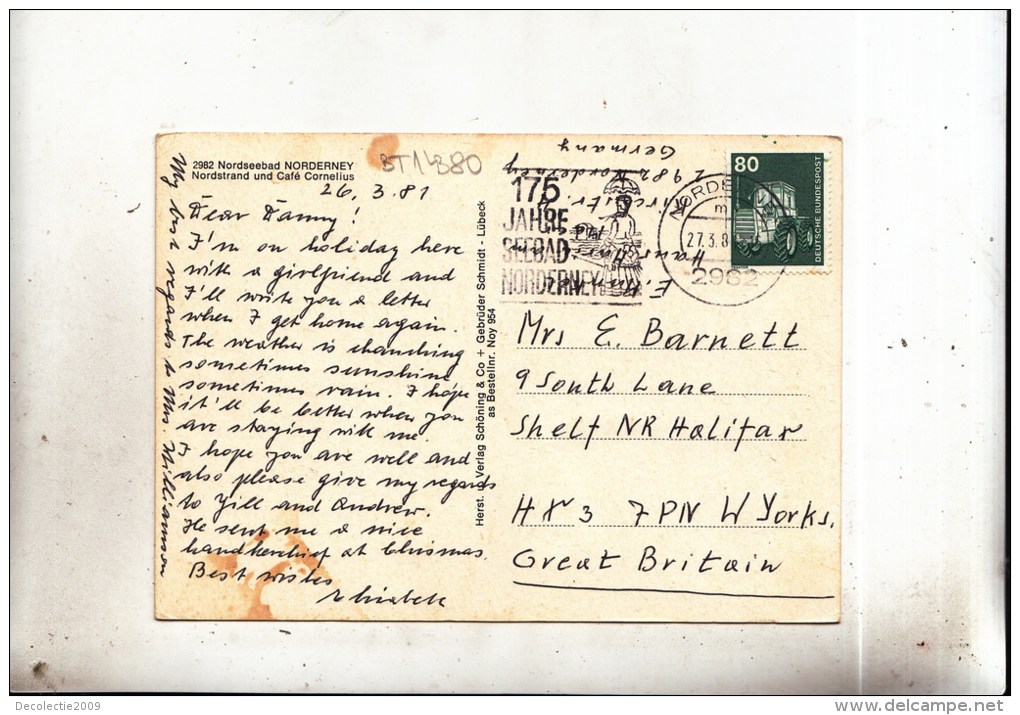 2982 Nordseebad NORDERNEY
Nordstrand und Café Cornelius
BT14380
26. 3. 81
Dear Danny!
I'm on holiday here
with a girlfriend and
I'll write you a letter
when I get home again.
The weather is chanching
sometimes sunshine
sometimes rain. I hope
it'll be better when you
are staying with me.
I hope you are well and
also please give my regards
to Jill and Andrew.
He sent me a nice
handkerchief at Chrismas.
Best wishes
Elisabeth
My best regards to Mrs. Williamson
Herst. + Verlag Schöning & Co + Gebrüder Schmidt - Lübeck
as Bestellnr. Noy 954
175
JAHRE
SEEBAD
NORDERNEY
2982 Norderney
Germany
NORDE
27.3.8
2982
80
DEUTSCHE BUNDESPOST
Mrs E. Barnett
9 South Lane
Shelf NR Halifax
HX 3 7PN W Yorks.
Great Britain
Decolectie2009